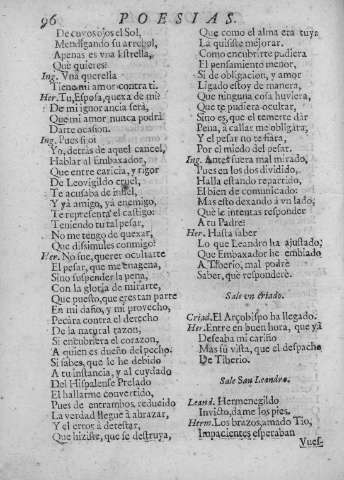 96 POESIAS.
De cuyos ojos el Sol,
Mendigando su arrebol,
Apenas es vna Estrella,
Què quieres?
Ing. Vna querella
Tiene mi amor contra ti.
Her. Tu, Esposa, quexa de mi?
De mi ignorancia serà,
Que mi amor nunca podrà
Darte ocasion.
Ing. Pues si oi
Yo, detràs de aquel cancel,
Hablar al Embaxador,
Que entre caricia, y rigor
De Leovigildo cruel,
Te acusaba de infiel,
Y yà amigo, yà enemigo,
Te representa el castigo:
Teniendo tu tal pesar,
No me tengo de quexar,
Que dissimules conmigo?
Her. No fue, querer ocultarte
El pesar, que me enagena,
Sino suspender la pena,
Con la gloria de mirarte,
Que puesto, que eres tan parte
En mi daño, y mi provecho,
Pecàra contra el derecho
De la natural razon,
Si encubriera el corazon,
A quien es dueño del pecho.
Si sabes, que le he debido
A tu instancia, y al cuydado
Del Hispalense Prelado
El hallarme convertido,
Pues de entrambos reducido
La verdad lleguè à abrazar,
Y el error à detestar,
Que hiziste, que se destruya,
Que como el alma era tuya
La quisiste mejorar.
Como encubrirte pudiera
El pensamiento menor,
Si de obligacion, y amor
Ligado estoy de manera,
Que ninguna cosa huviera,
Que te pudiera ocultar,
Sino es, que el temerte dàr
Pena, à callar me obligàra,
Y el pesar no te fiàra,
Por el miedo del pesar.
Ing. Antes fuera mal mirado,
Pues en los dos dividido,
Halla estando repartido,
El bien de comunicado:
Mas esto dexando à vn lado,
Què le intentas responder
A tu Padre?
Her. Hasta saber
Lo que Leandro ha ajustado;
Que Embaxador he embiado
A Tiberio, mal podrè
Saber, què responderè.
Sale vn criado.
Criad. El Arçobispo ha llegado.
Her. Entre en buen hora, que yà
Deseaba mi cariño
Mas su vista, que el despacho
De Tiberio.
Sale San Leandro.
Leand. Hermenegildo
Invicto, dame los pies.
Herm. Los brazos, amado Tio,
Impacientes esperaban
Vues-